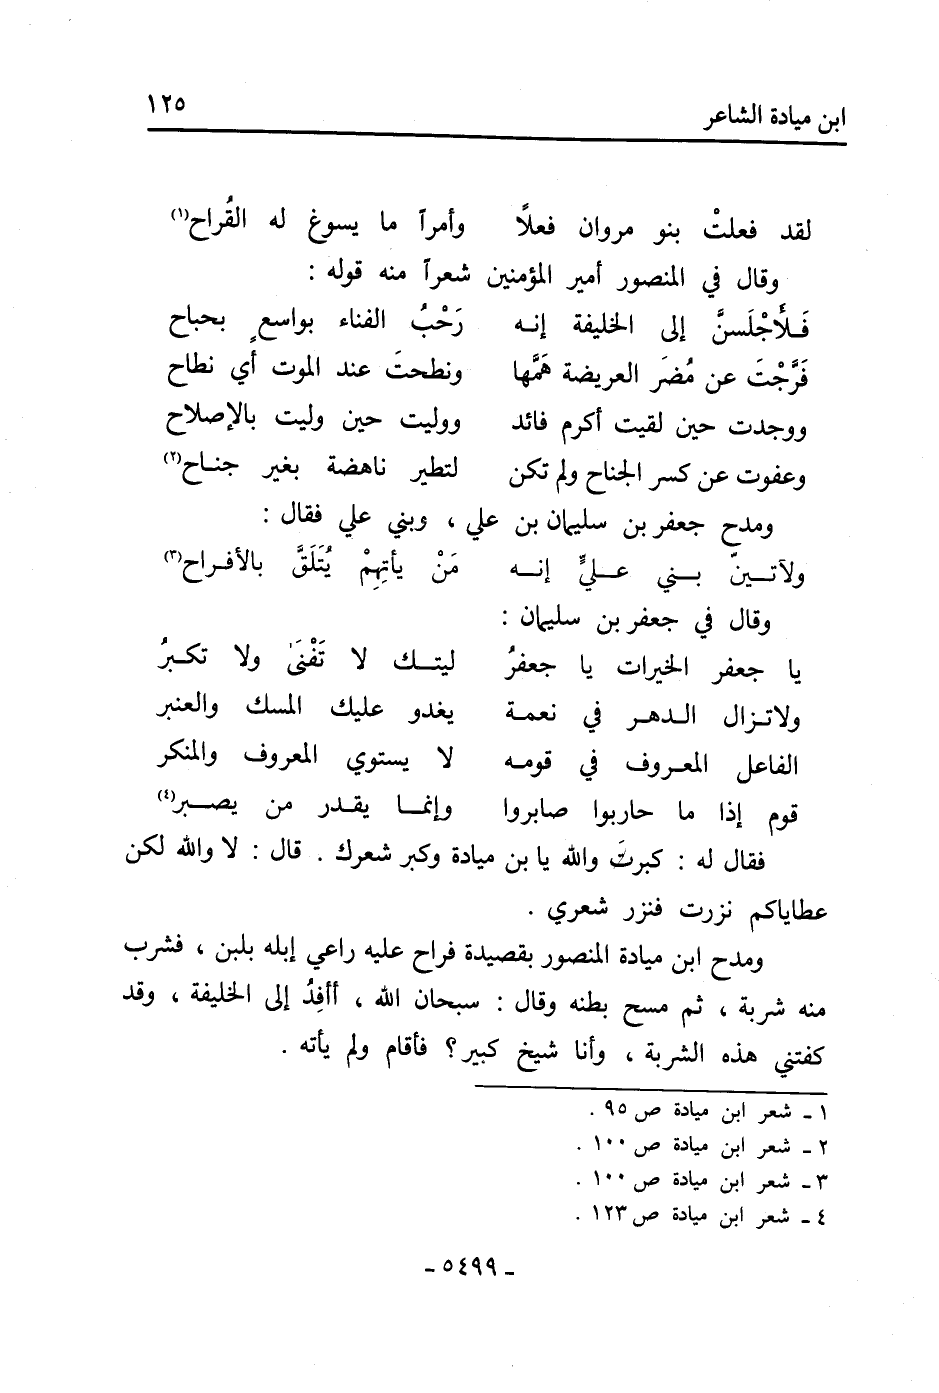 ابن ميادة الشاعر ١٢٥
لقد فعلتْ بنو مروان فعلاً وأمراً ما يسوغ له القُراح(١)
وقال في المنصور أمير المؤمنين شعراً منه قوله :
فَلأَجْلَسنَّ إلى الخليفة إنه رَحْبُ الفناء بواسعٍ بحباح
فَرَّجْتَ عن مُضَر العريضة هَمَّها ونطحتَ عند الموت أي نطاح
ووجدت حين لقيت أكرم فائد ووليت حين وليت بالإصلاح
وعفوت عن كسر الجناح ولم تكن لتطير ناهضة بغير جناح(٢)
ومدح جعفر بن سليمان بن علي ، وبني علي فقال :
ولآتينّ بني عليٍّ إنه مَنْ يأتِهِمْ يُتَلَقَّ بالأفراح(٣)
وقال في جعفر بن سليمان :
يا جعفر الخيرات يا جعفرُ ليتك لا تَفْنَىٰ ولا تكبرُ
ولاتزال الدهر في نعمة يغدو عليك المسك والعنبر
الفاعل المعروف في قومه لا يستوي المعروف والمنكر
قوم إذا ما حاربوا صابروا وإنما يقدر من يصبر(٤)
فقال له : كبرتَ والله يا بن ميادة وكبر شعرك . قال : لا والله لكن
عطاياكم نزرت فنزر شعري .
ومدح ابن ميادة المنصور بقصيدة فراح عليه راعي إبله بلبن ، فشرب
منه شربة ، ثم مسح بطنه وقال : سبحان الله ، أأفِدُ إلى الخليفة ، وقد
كفتني هذه الشربة ، وأنا شيخ كبير ؟ فأقام ولم يأته .
١ ـ شعر ابن ميادة ص ٩٥ .
٢ ـ شعر ابن ميادة ص ١٠٠ .
٣ ـ شعر ابن ميادة ص ١٠٠ .
٤ ـ شعر ابن ميادة ص ١٢٣ .
ـ ٥٤٩٩ ـ